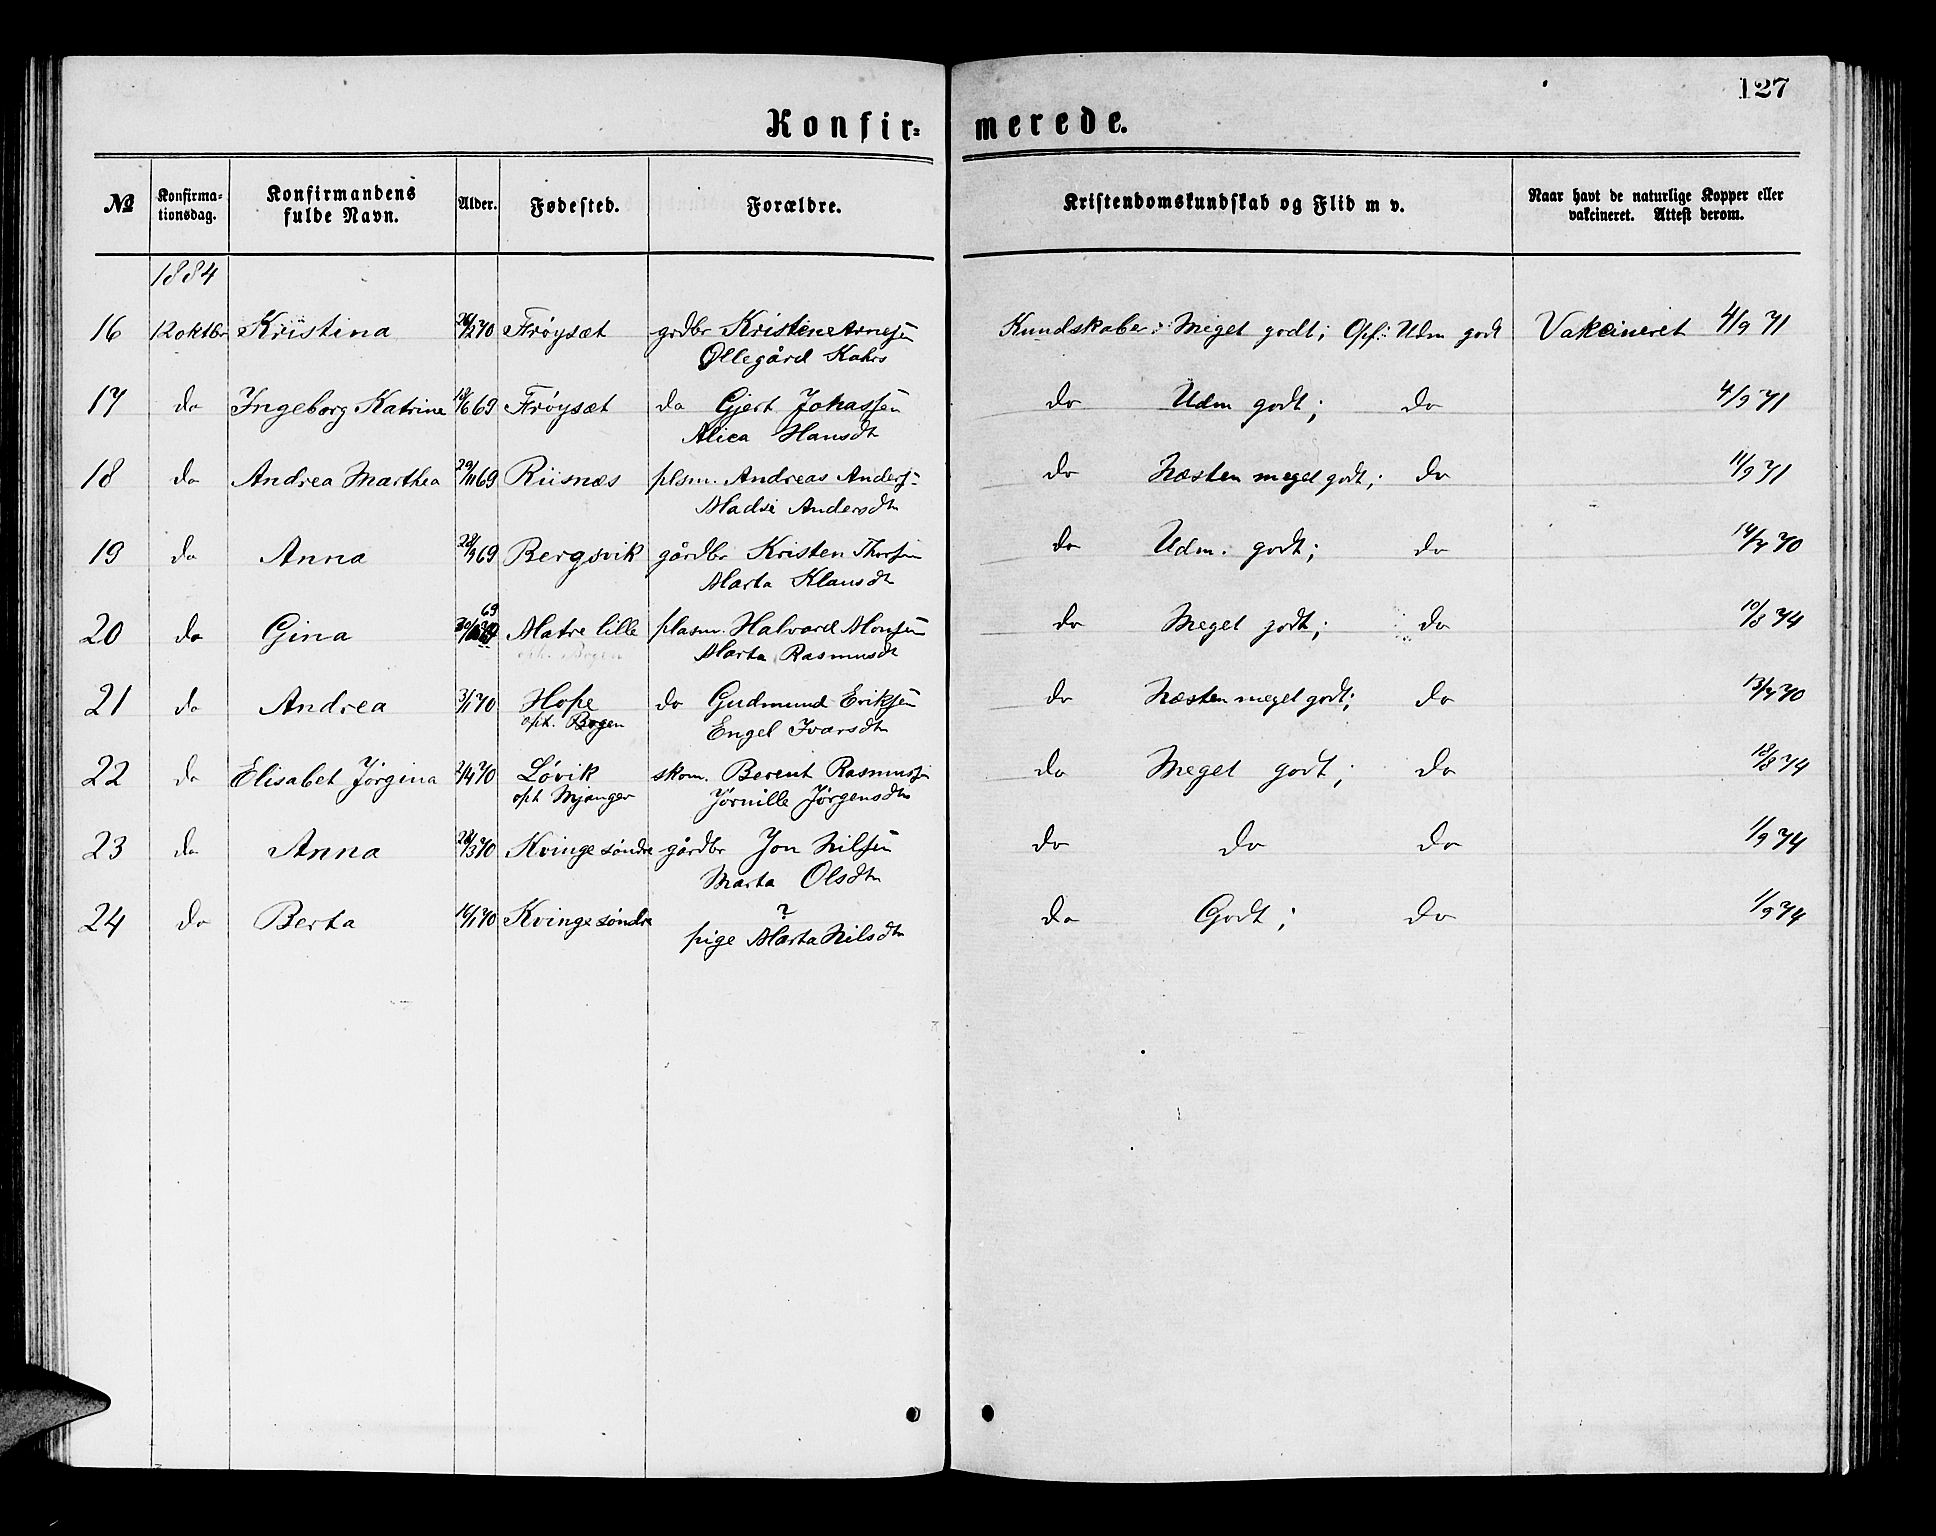 127
Konfir= merede.
№ Konfirma-tionsdag. Konfirmandens fulde Navn. Alder. Fødested. Forældre. Kristendomskundskab og Flid m v. Naar havt de naturlige Kopper eller vakcineret. Attest derom.
1884
16 12 oktbr Kristina Frøysæt grdbr Kristen Arnesen Kundskaber: Meget godt; Opf: Udm godt Vakcineret 4/9 71
Øllegård Kahrs
17 do Ingeborg Katrine 18/6 69 Frøysæt do Gjert Johassen do Udm godt; do 4/9 71
Alica Hansdtr
18 do Andrea Marthea 29/11 69 Riisnæs plsm. Andreas Anders: do Næsten meget godt; do 11/9 71
Madsi Andersdtr
19 do Anna 28/9 69 Bergsvik gårdbr Kristen Thorsen do Udm. godt; do 14/7 70
Marta Klausdtr
69
20 do Gina Matre lille plasm. Halvard Monsen do Meget godt; do 10/8 74
oph. Bogen Marta Rasmusdtr
21 do Andrea 3/1 70 Hope do Gudmund Eriksen do Næsten meget godt; do 13/7 70
oph. Bogen Engel Ivarsdtr
22 do Elisabet Jørgina 2/4 70 Løvik skom. Berent Rasmussen do Meget godt; do 18/8 74
oph Mjanger Jørnille Jørgensdtr
23 do Anna 28/3 70 Kvinge søndre gårdbr Jon Nilsen do do do 1/9 74
Marta Olsdtr
24 do Berta 16/1 70 Kvinge søndre ? do Godt; do 1/9 74
pige Marta Nilsdtr